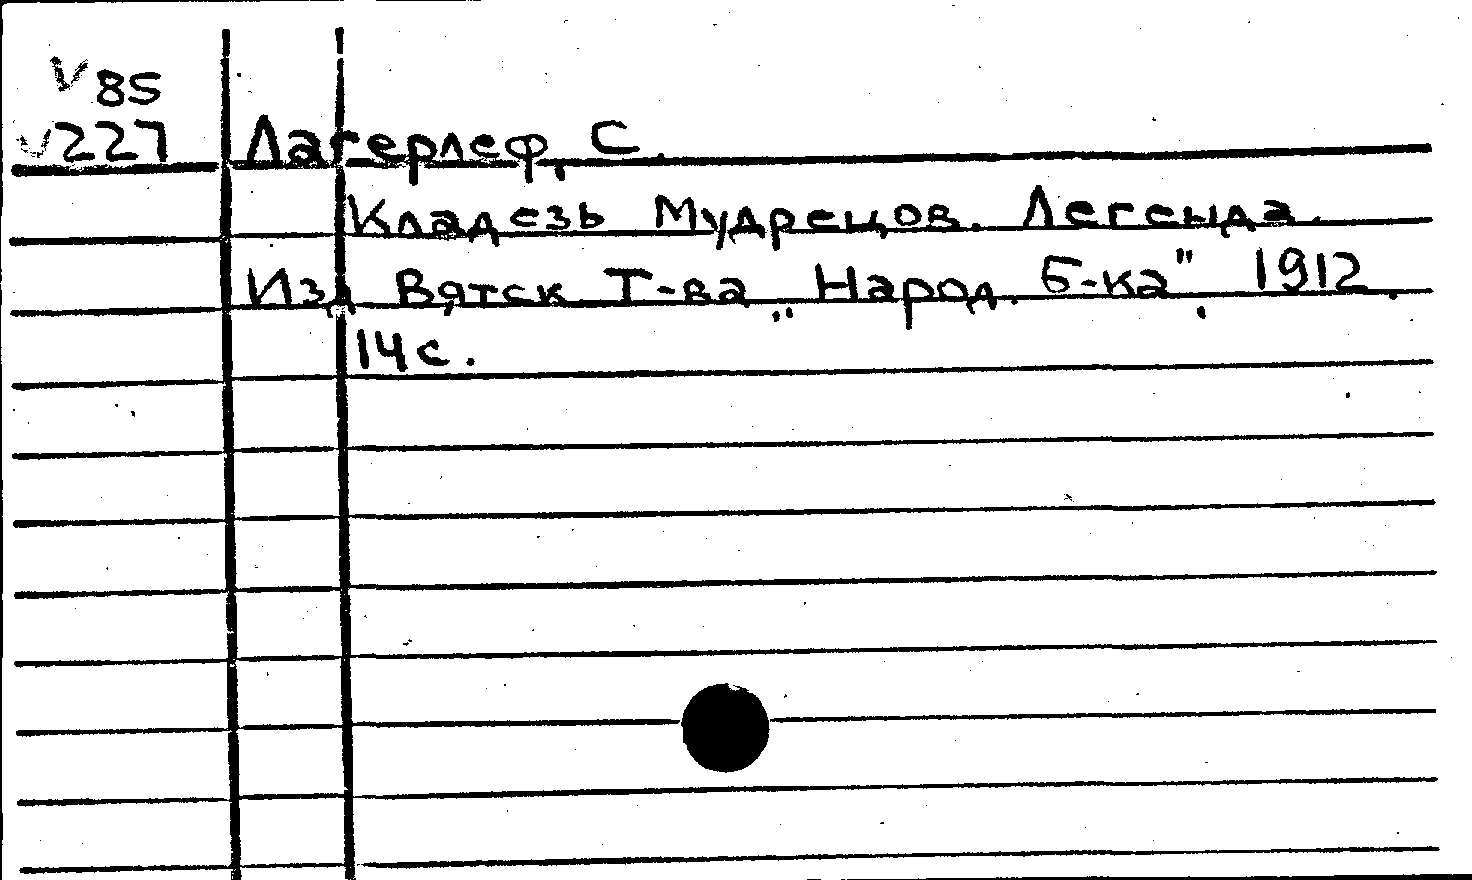 V 85
V 227
Лагерлеф, С.
Кладезь Мудрецов. Легенда.
Изд Вятск Т-ва „Народ. б-ка", 1912.
14 с.